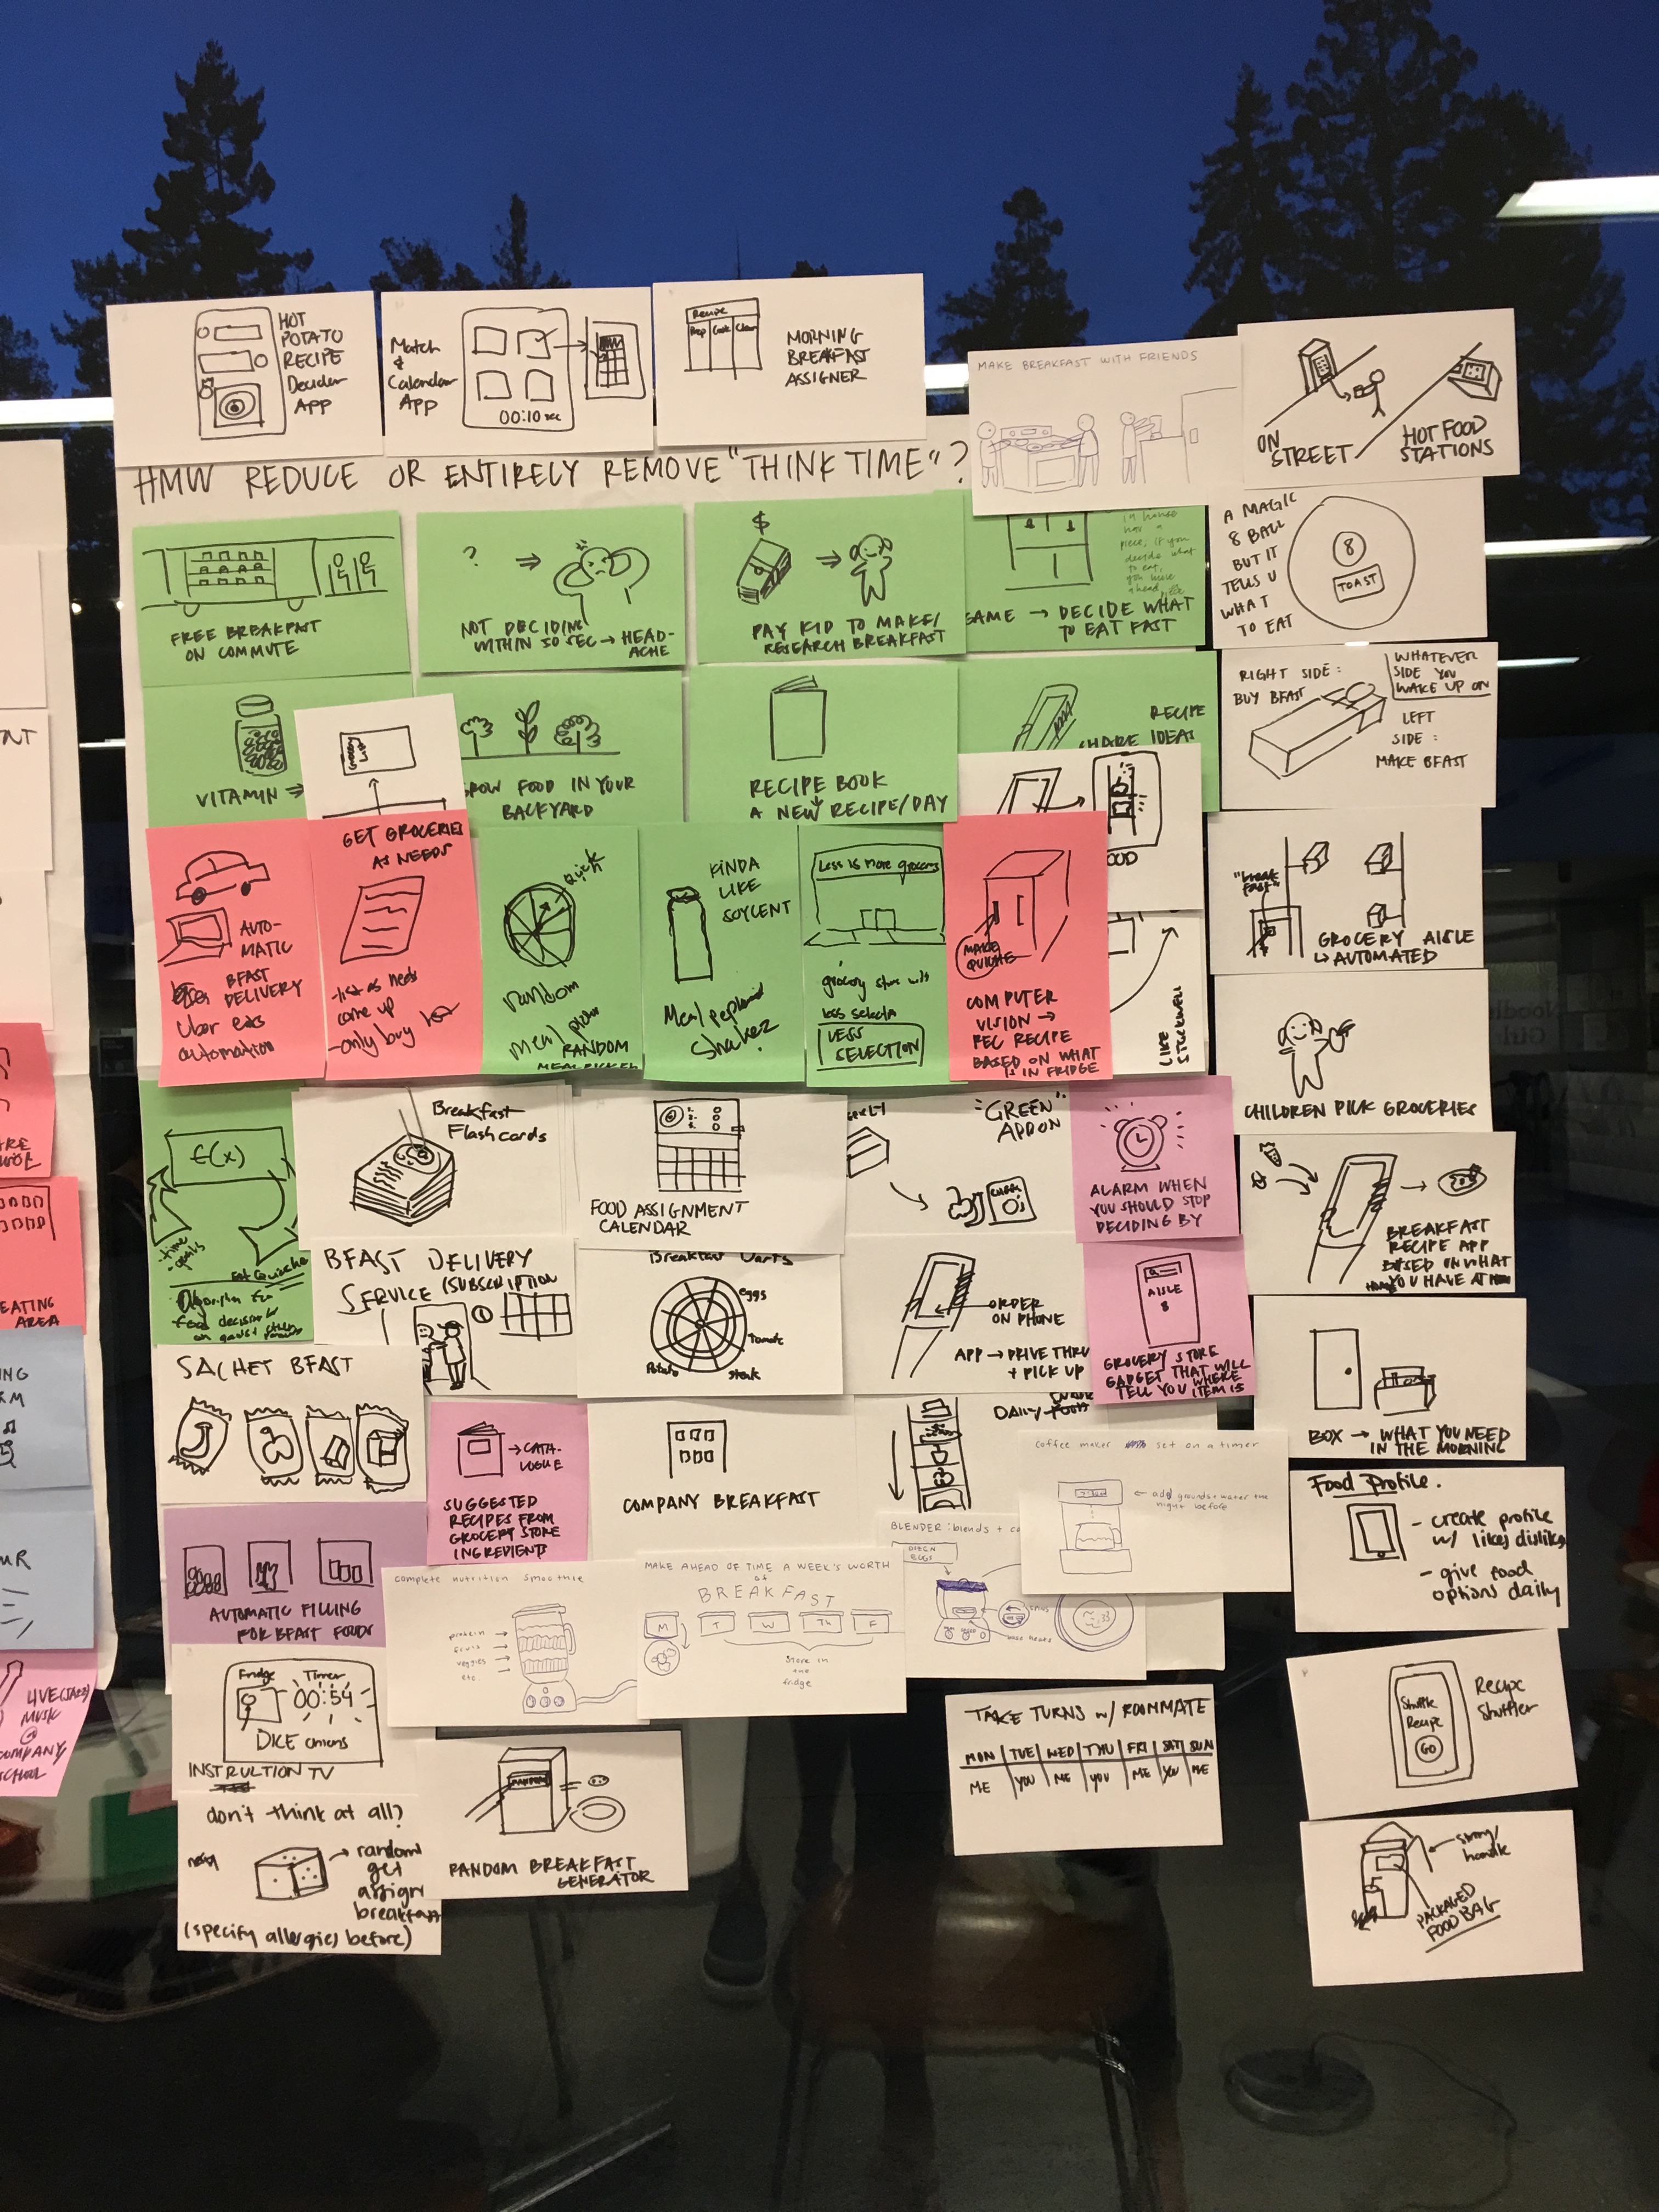 HOT
POTATO
RECIPE
Decider
APP
Match
&
Calendar
App
00:10 sec
Recipe
Prep Cook Clean
MORNING
BREAKFAST
ASSIGNER
MAKE BREAKFAST WITH FRIENDS
ON
STREET
HOT FOOD
STATIONS
HMW REDUCE OR ENTIRELY REMOVE "THINK TIME"?
FREE BREAKFAST
ON COMMUTE
?
NOT DECIDING
WITHIN 30 SEC → HEAD-
ACHE
$
PAY KID TO MAKE/
RESEARCH BREAKFAST
piece, if you
decide what
to eat,
you move
ahead
GAME → DECIDE WHAT
TO EAT FAST
A MAGIC
8 BALL
BUT IT
TELLS U
WHAT
TO EAT
8
TOAST
VITAMIN ⇒
GROW FOOD IN YOUR
BACKYARD
RECIPE BOOK
A NEW RECIPE/DAY
RECIPE
SHARE IDEAS
RIGHT SIDE:
BUY BFAST
WHATEVER
SIDE YOU
WAKE UP ON
LEFT
SIDE:
MAKE BFAST
AUTO-
MATIC
BFAST
DELIVERY
Uber eats
automation
GET GROCERIES
AS NEEDS
-list as needs
come up
-only buy
random
meal
RANDOM
MEAL PICKER
KINDA
LIKE
SOYLENT
Meal
Shakez
Less is more grocers
grocery store with
less
LESS
SELECTION
MAKE
QUICHE
COMPUTER
VISION →
REC RECIPE
BASED ON WHAT
IS IN FRIDGE
LIKE
"break
fast"
GROCERY AISLE
↳ AUTOMATED
CHILDREN PICK GROCERIES
f(x)
-time
-goals
Algorithm for
food decision
Breakfast
Flashcards
FOOD ASSIGNMENT
CALENDAR
"GREEN"
ADD ON
ALARM WHEN
YOU SHOULD STOP
DECIDING BY
BREAKFAST
RECIPE APP
BASED ON WHAT
YOU HAVE AT
BFAST DELIVERY
SERVICE (SUBSCRIPTION
Breakfast Darts
eggs
Tomato
steak
Potato
ORDER
ON PHONE
APP → DRIVE THRU
+ PICK UP
AISLE
8
GROCERY STORE
GADGET THAT WILL
TELL YOU WHERE
ITEM IS
SACHET BFAST
→ CATA-
LOGUE
SUGGESTED
RECIPES FROM
GROCERY STORE
INGREDIENTS
COMPANY BREAKFAST
DAILY
BOX → WHAT YOU NEED
IN THE MORNING
coffee maker set on a timer
← add grounds + water the
night before
Food Profile.
- create profile
w/ likes dislikes
- give food
options daily
AUTOMATIC FILLING
FOR BFAST FOODS
complete nutrition smoothie
protein
fruit
veggies
etc
MAKE AHEAD OF TIME A WEEK'S WORTH
of
BREAKFAST
M T W Th F
Store in
the
fridge
BLENDER: blends + co
Fridge
Timer
00:54
DICE onions
INSTRUCTION TV
TAKE TURNS w/ ROOMMATE
MON TUE WED THU FRI SAT SUN
ME YOU ME YOU ME YOU ME
Shuffle
Recipe
GO
Recipe
Shuffler
don't think at all?
→ random
get
assign
breakfast
(specify allergies before)
RANDOM BREAKFAST
GENERATOR
handle
PACKAGED
FOOD BAG
EATING
AREA
LIVE (JAZZ)
MUSIC
@
COMPANY/
SCHOOL